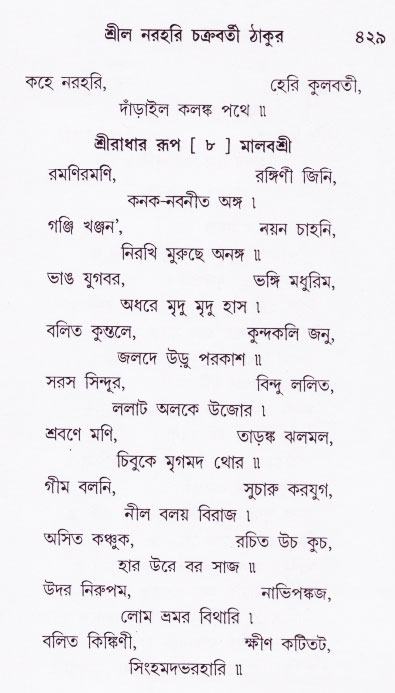 শ্রীল নরহরি চক্রবর্তী ঠাকুর ৪২৯
কহে নরহরি, হেরি কুলবতী,
দাঁড়াইল কলঙ্ক পথে ॥
শ্রীরাধার রূপ [ ৮ ] মালবশ্রী
রমণিরমণি, রঙ্গিণী জিনি,
কনক-নবনীত অঙ্গ ।
গঞ্জি খঞ্জন', নয়ন চাহনি,
নিরখি মুরুছে অনঙ্গ ॥
ভাঙ যুগবর, ভঙ্গি মধুরিম,
অধরে মৃদু মৃদু হাস ।
বলিত কুন্তলে, কুন্দকলি জনু,
জলদে উড়ু পরকাশ ॥
সরস সিন্দূর, বিন্দু ললিত,
ললাট অলকে উজোর ।
শ্রবণে মণি, তাড়ঙ্ক ঝলমল,
চিবুকে মৃগমদ থোর ॥
গীম বলনি, সুচারু করযুগ,
নীল বলয় বিরাজ ।
অসিত কঞ্চুক, রচিত উচ কুচ,
হার উরে বর সাজ ॥
উদর নিরুপম, নাভিপঙ্কজ,
লোম ভ্রমর বিথারি ।
বলিত কিঙ্কিণী, ক্ষীণ কটিতট,
সিংহমদভরহারি ॥